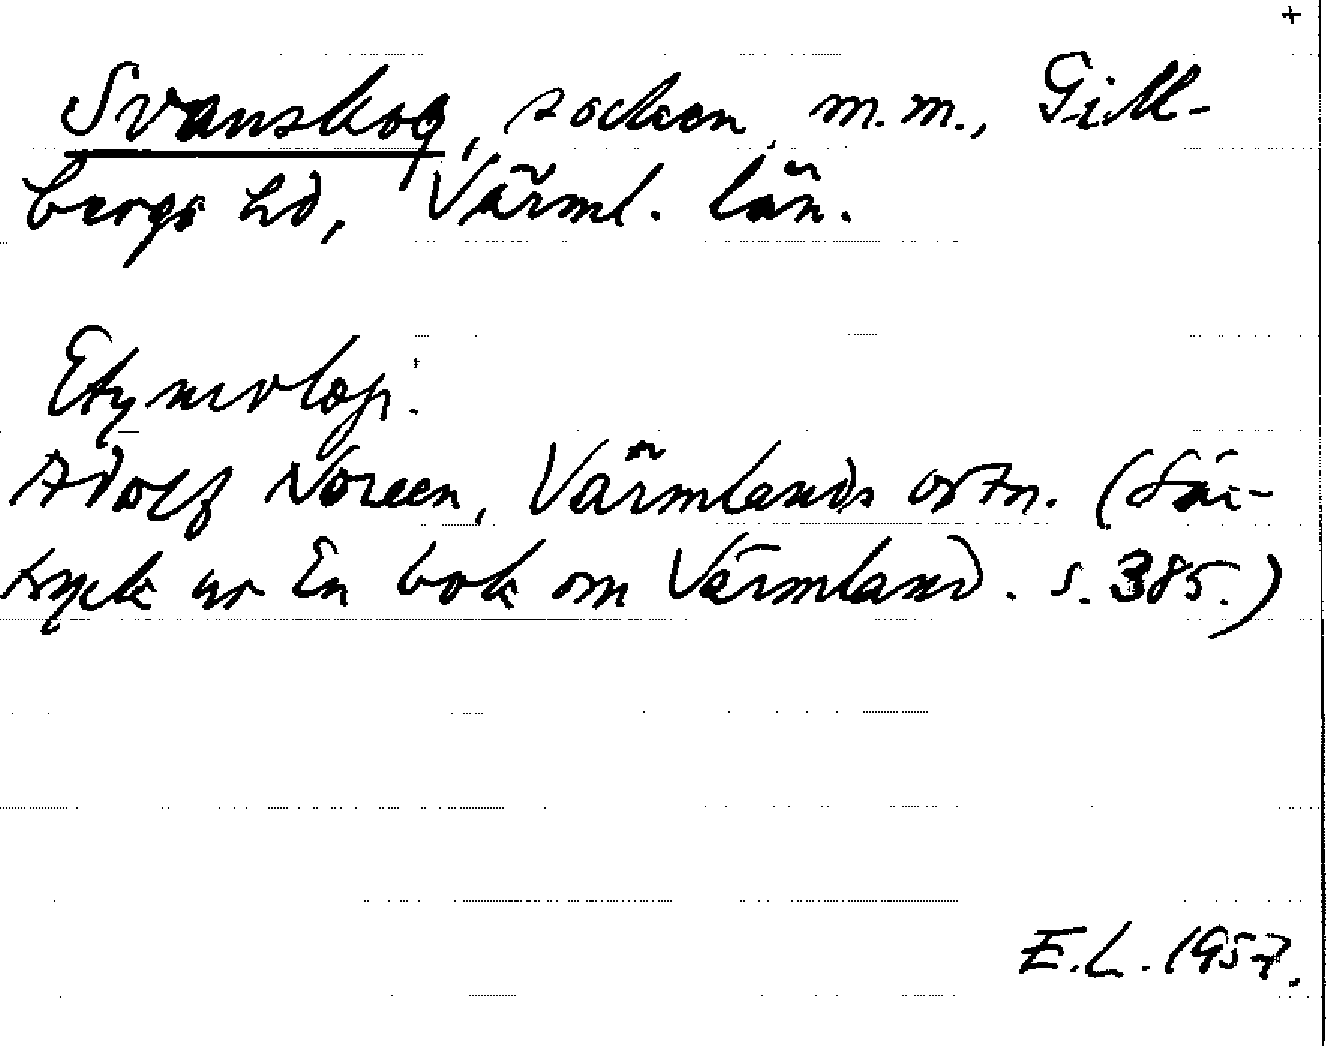 +
Svanskog, socken m.m., Gill-
bergs hd, Värml. län.
Etymologi:
Adolf Noreen, Värmlands ortn. (Sär-
tryck ur En bok om Värmland. s. 385.)
E.L. 1957.